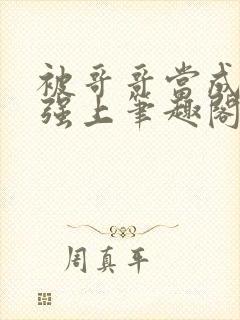 被哥哥当成
强上笔趣阁
周真平